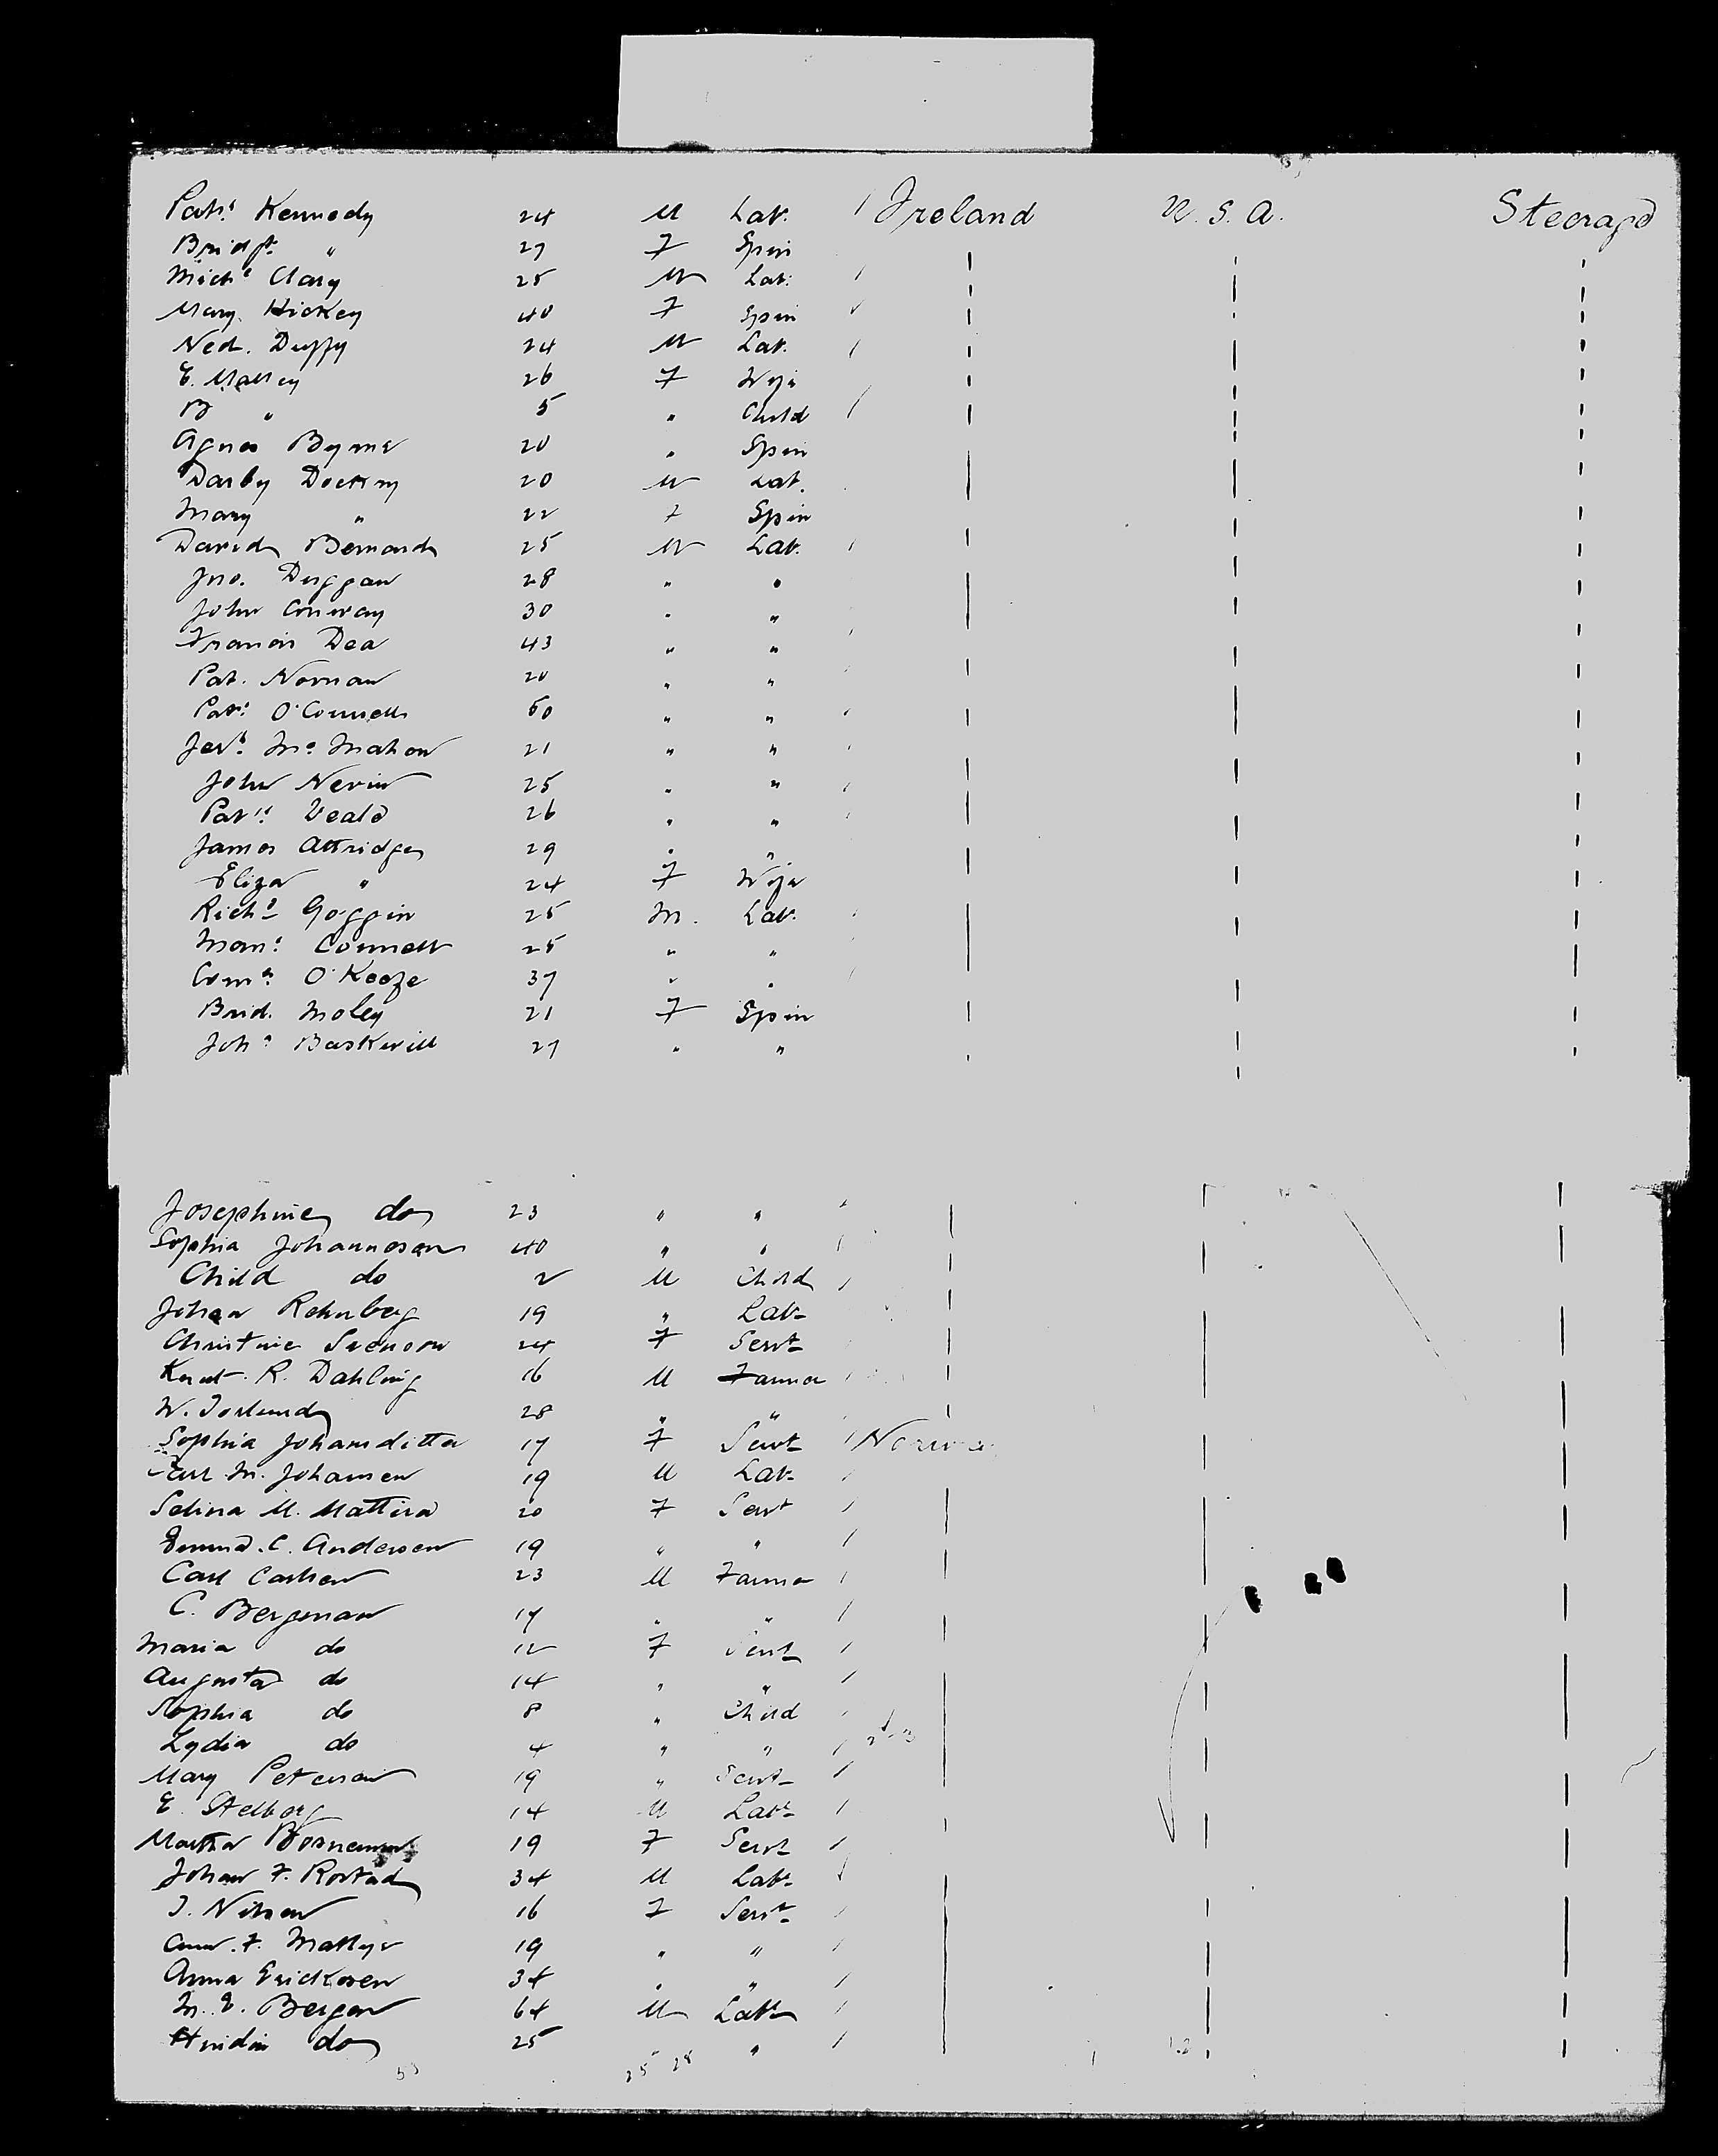 Patk. Kennedy 24 M Lab. Ireland U.S.A. Steerage
Bridgt. " 27 F Spin
Michl. Clary 25 M Lab.
Mary. Hickey 40 F Spin
Ned. Duffy 24 M Lab.
E. Malley 26 F Wife
B " 5 " Child
Agnes Byrne 20 " Spin
Darby Dockry 20 M Lab.
Mary " 22 F Spin
David Bernard 25 M Lab.
Jno. Duggan 28 " "
John Conway 30 " "
Francis Dea 43 " "
Pat. Nornan 20 " "
Patk. O'Connell 50 " "
Jerh. McMahon 21 " "
John Nevin 25 " "
Patk. Veale 26 " "
James Attridge 29 " "
Eliza " 24 F Wife
Richd. Goggin 25 M. Lab.
Connell 25 " "
O'Keefe 37 " "
Brid. Moley 21 F Spin
Joha. Baskerill 27 " "
Josephine do 23 " "
Sophia Johannesen 40 " "
Child do 2 M Child
Johan Rehnberg 19 " Lab
Christine Svenson 24 F Servt
Knut. R. Dahling 16 M Farmer
W. 28 " "
Sophia Johansditter 17 F Servt Norwa
M. Johansen 19 M Lab
Selina M. Mattira 20 F Servt
C. Andersen 19 " "
Carl Carlsen 23 M Farmer
C. Bergman 17 " "
Maria do 12 F Servt
Augusta do 14 " "
Sophia do 8 " Child
Lydia do 4 " "
Mary Peterson 19 " Servt
E. Stelborg 14 M Labr
Martha 19 F Servt
Johan F. Rostad 34 M Labr
J. Nilsen 16 F Servt
F. 19 " "
Anna Erickssen 34 " "
M. E. Bergen 64 M Labr
do 25 " "
53 25 28